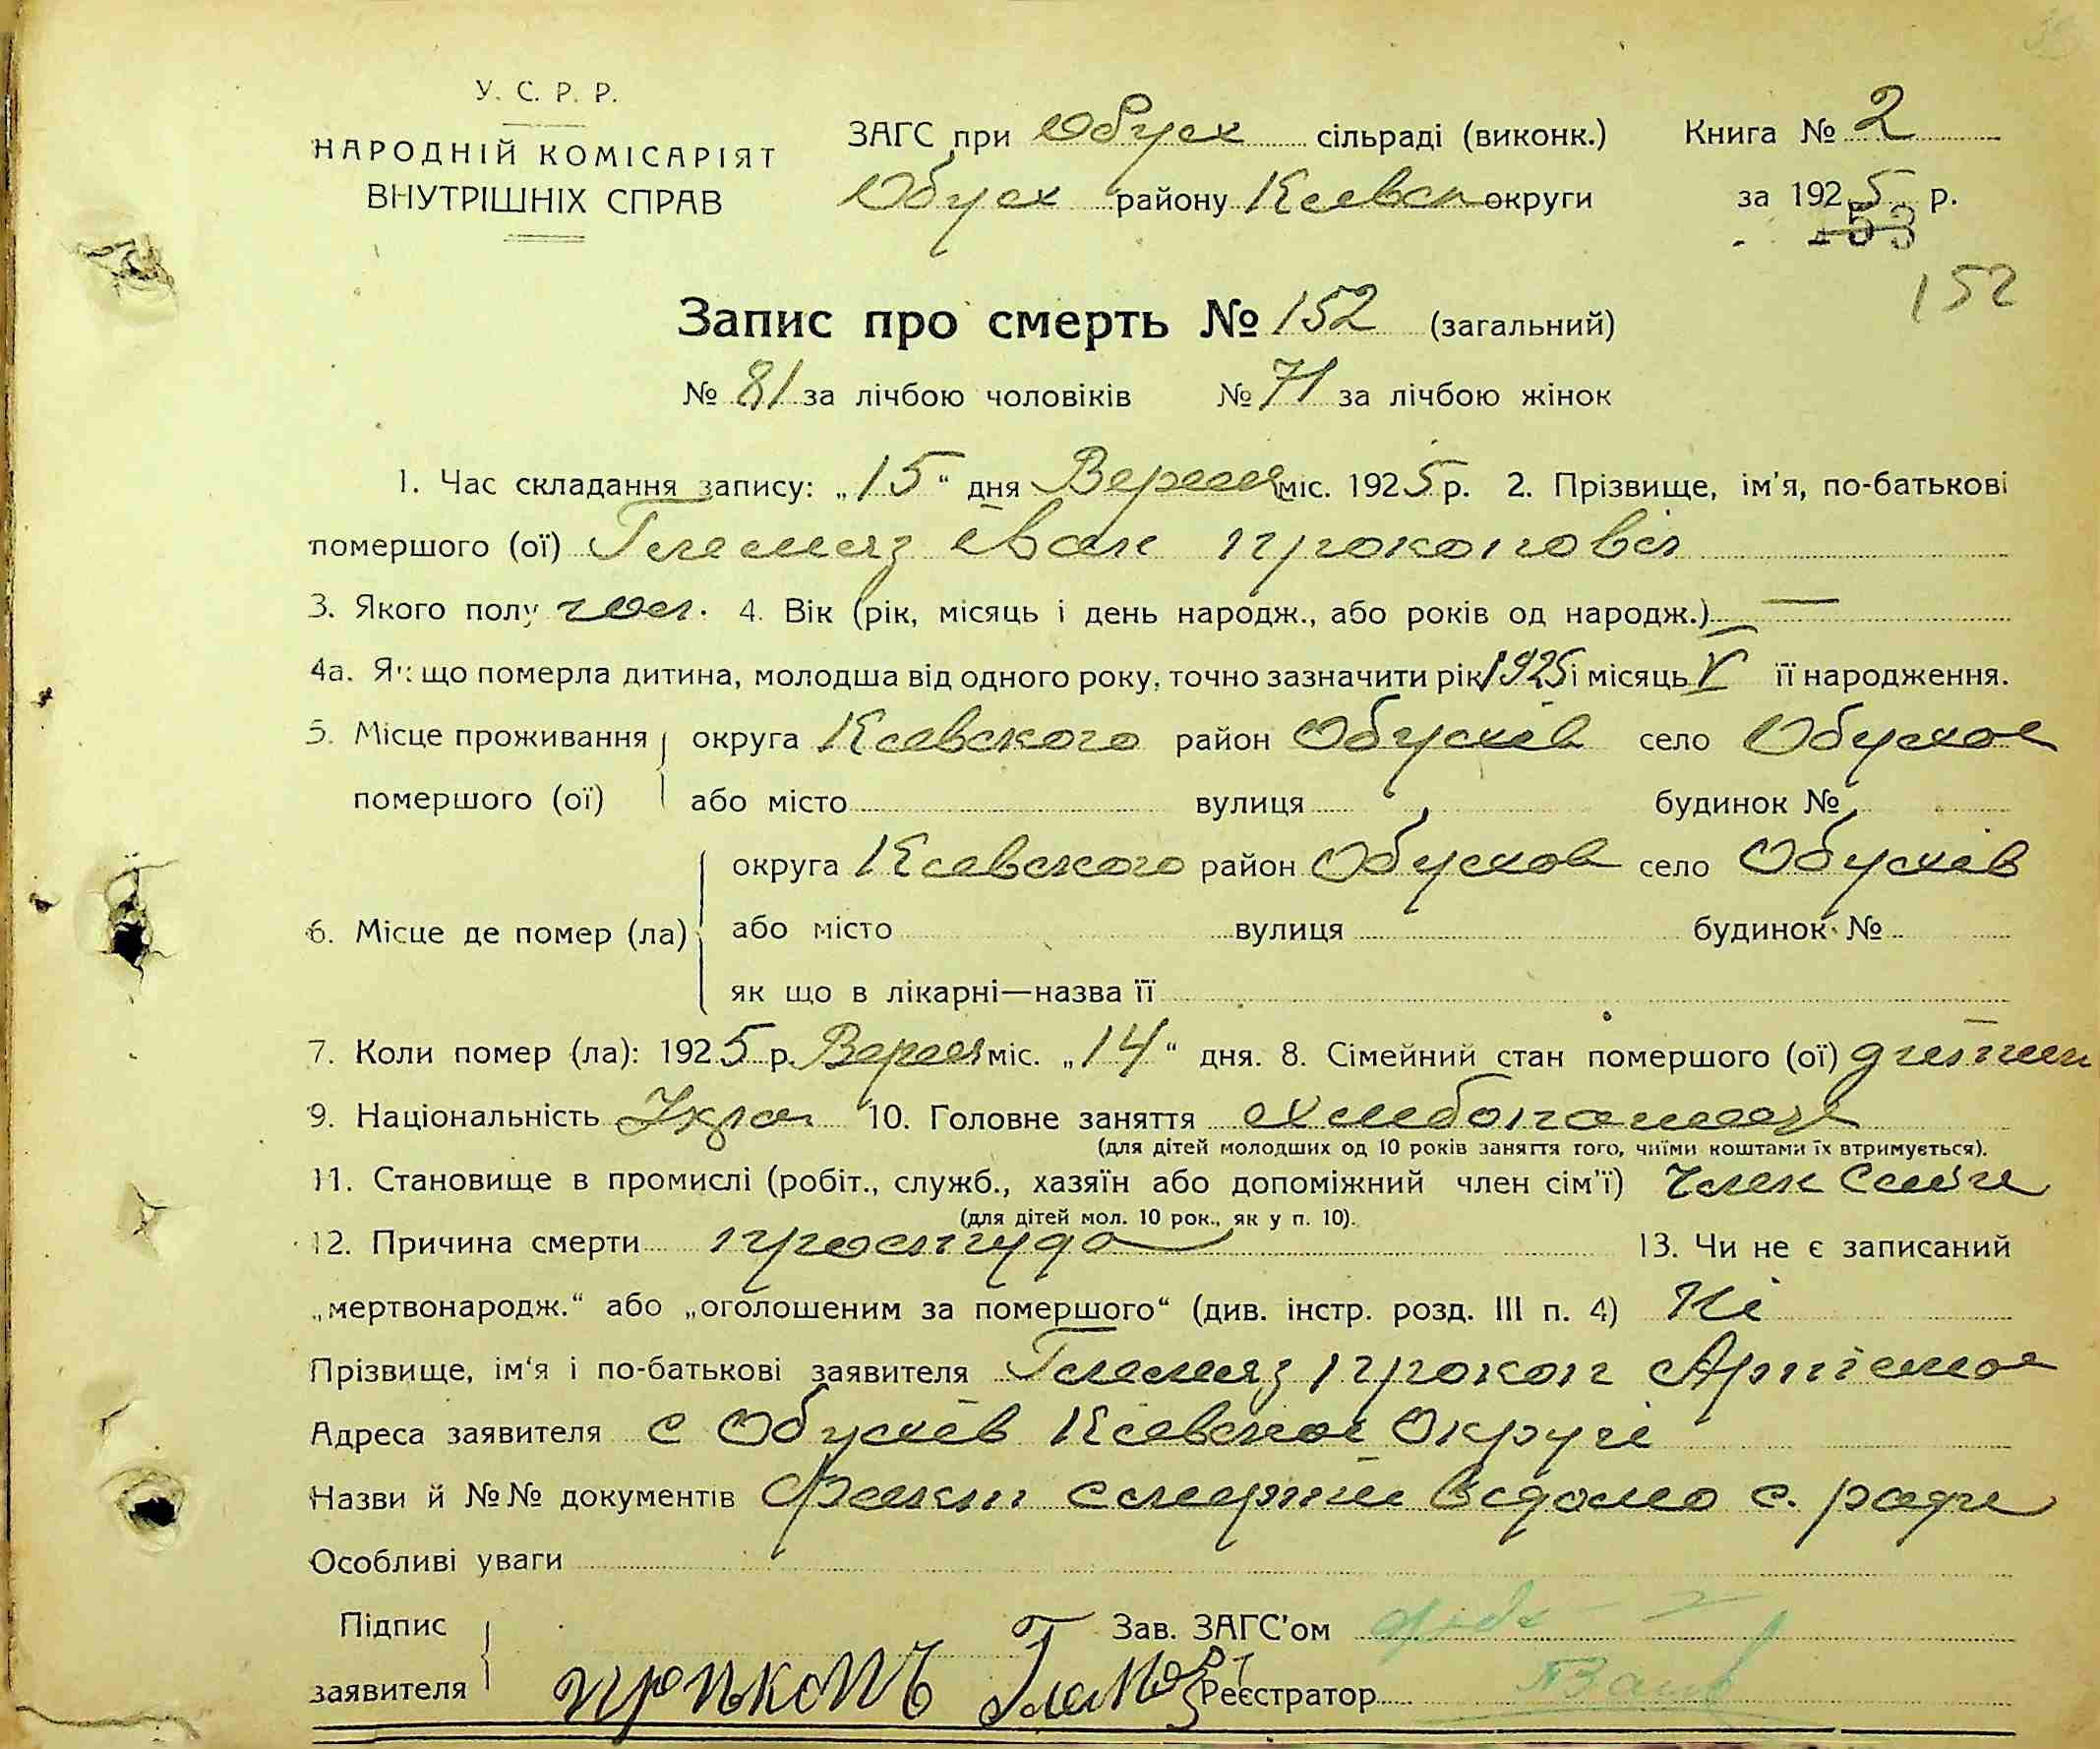 У. С. Р. Р.
НАРОДНІЙ КОМІСАРІЯТ
ВНУТРІШНІХ СПРАВ
ЗАГС при Обух сільраді (виконк.)
Обух району Киевск округи
Книга № 2
за 1925 р.
153
152
Запис про смерть № 152 (загальний)
№ 81 за лічбою чоловіків № 71 за лічбою жінок
1. Час складання запису: „15“ дня Вересня міс. 1925 р. 2. Прізвище, ім'я, по-батькові
помершого (ої) Гелемяз Іван Прокоповіч
3. Якого полу чол. 4. Вік (рік, місяць і день народж., або років од народж.) —
4а. Як що померла дитина, молодша від одного року, точно зазначити рік 1925 і місяць V її народження.
5. Місце проживання помершого (ої) округа Киевского район Обухів село Обухов
або місто вулиця будинок №
6. Місце де помер (ла) округа Киевского район Обухов село Обухів
або місто вулиця будинок №
як що в лікарні—назва її
7. Коли помер (ла): 1925 р. Вересня міс. „14“ дня. 8. Сімейний стан помершого (ої)
9. Національність Укра 10. Головне заняття
(для дітей молодших од 10 років заняття того, чиїми коштами їх втримується).
11. Становище в промислі (робіт., служб., хазяїн або допоміжний член сім'ї) Член Сем'и
(для дітей мол. 10 рок., як у п. 10).
12. Причина смерти простуда 13. Чи не є записаний
„мертвонародж.“ або „оголошеним за помершого“ (див. інстр. розд. III п. 4) Ні
Прізвище, ім'я і по-батькові заявителя Гелемяз Прокоп Артемов
Адреса заявителя с Обухів Київскої Округі
Назви й №№ документів Факт смерти відомо с. ради
Особливі уваги
Підпис заявителя Прокопъ
Зав. ЗАГС'ом
Реєстратор